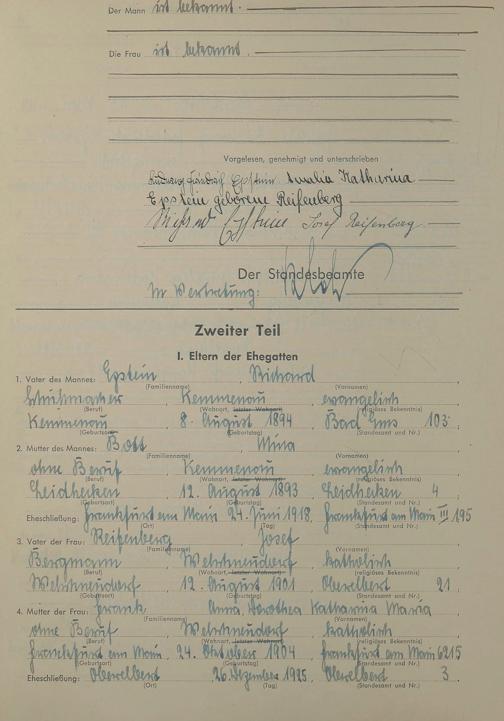 Der Mann ist bekannt.
Die Frau ist bekannt.
Vorgelesen, genehmigt und unterschrieben
Ludwig Friedrich Epstein Amalia Katharina
Epstein geborene Reifenberg
Epstein Josef Reifenberg
Der Standesbeamte
In Vertretung:
Zweiter Teil
I. Eltern der Ehegatten
1. Vater des Mannes: Epstein Richard
(Familienname) (Vornamen)
Schuhmacher Kemmenau evangelisch
(Beruf) (Wohnort, letzter Wohnort) (religiöses Bekenntnis)
Kemmenau 8. August 1894 Bad Ems 103
(Geburtsort) (Geburtstag) (Standesamt und Nr.)
2. Mutter des Mannes: Bott Mina
(Familienname) (Vornamen)
ohne Beruf Kemmenau evangelisch
(Beruf) (Wohnort, letzter Wohnort) (religiöses Bekenntnis)
Leidhecken 12. August 1893 Leidhecken 4
(Geburtsort) (Geburtstag) (Standesamt und Nr.)
Eheschließung: Frankfurt am Main 24. Juni 1918 Frankfurt am Main III 195
(Ort) (Tag) (Standesamt und Nr.)
3. Vater der Frau: Reifenberg Josef
(Familienname) (Vornamen)
Bergmann Welschneudorf katholisch
(Beruf) (Wohnort, letzter Wohnort) (religiöses Bekenntnis)
Welschneudorf 12. August 1901 Oberelbert 21
(Geburtsort) (Geburtstag) (Standesamt und Nr.)
4. Mutter der Frau: Frank Anna Dorothea Katharina Maria
(Familienname) (Vornamen)
ohne Beruf Welschneudorf katholisch
(Beruf) (Wohnort, letzter Wohnort) (religiöses Bekenntnis)
Frankfurt am Main 24. Oktober 1904 Frankfurt am Main 6215
(Geburtsort) (Geburtstag) (Standesamt und Nr.)
Eheschließung: Oberelbert 26. Dezember 1925 Oberelbert 3
(Ort) (Tag) (Standesamt und Nr.)